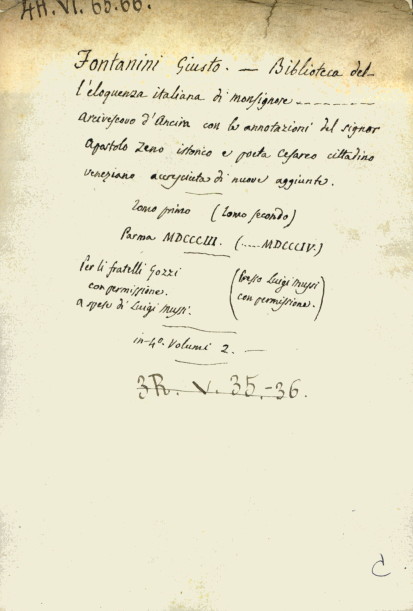 4A. VI. 65.66.
Fontanini Giusto. — Biblioteca del-
l'eloquenza italiana di monsignore --------
Arcivescovo d'Ancira con le annotazioni del signor
Apostolo Zeno istorico e poeta Cesareo cittadino
veneziano accresciuta di nuove aggiunte.
Tomo primo (Tomo secondo)
Parma MDCCCIII. (.....MDCCCIV.)
Per li fratelli Gozzi
con permissione.
a spese di Luigi Mussi.
(Presso Luigi Mussi
con permissione.)
in-4º. Volumi 2. —
3R. V. 35.-36.
C